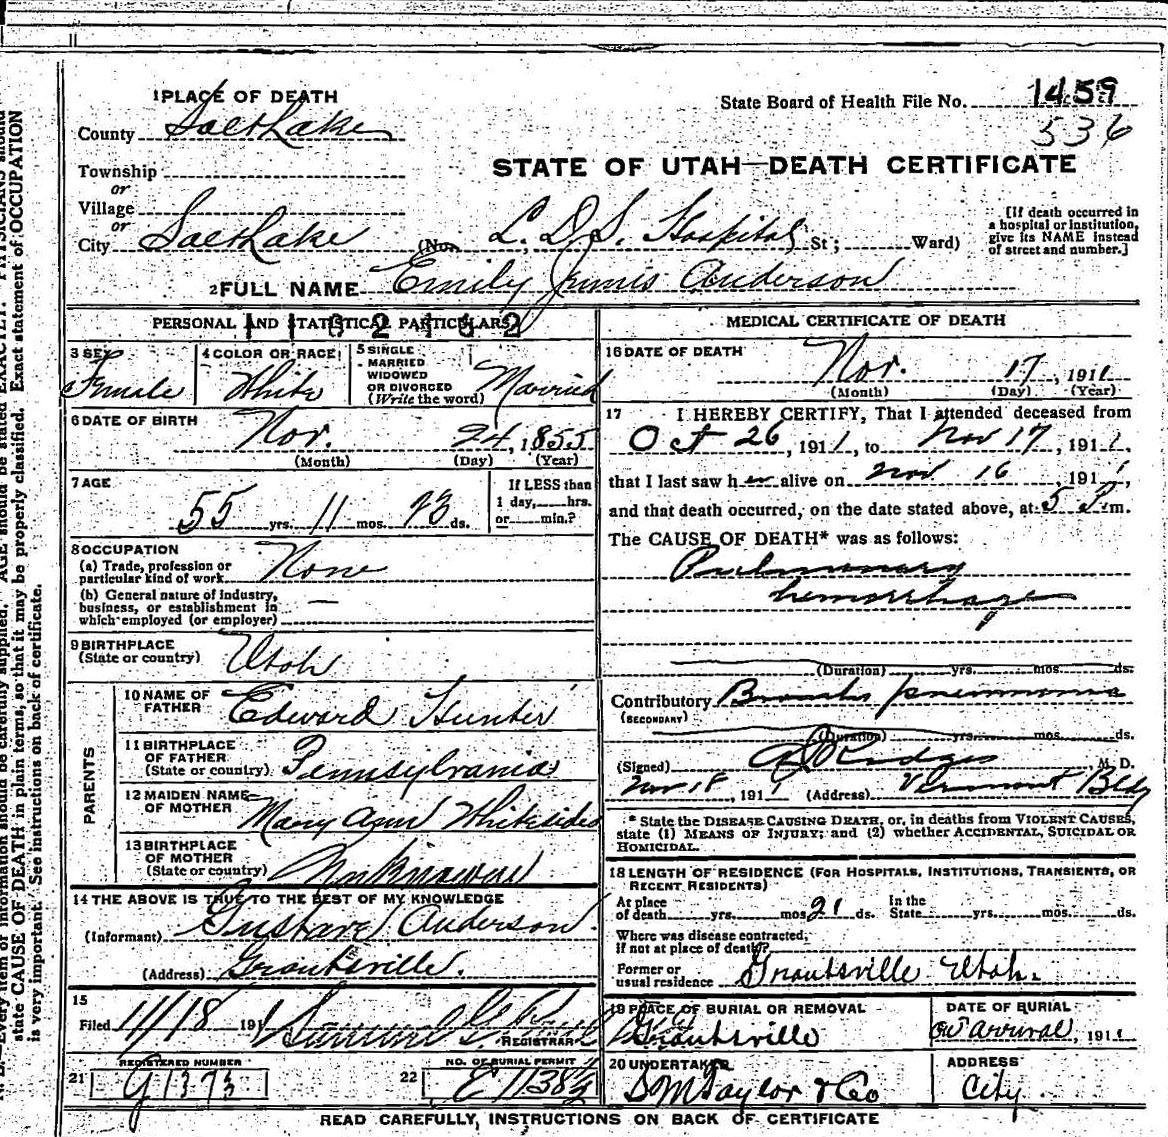 1 PLACE OF DEATH
State Board of Health File No. 1459
536
County Salt Lake
STATE OF UTAH—DEATH CERTIFICATE
Township
or
Village
or
City Salt Lake (No. L. D. S. Hospital St; Ward)
[If death occurred in
a hospital or institution,
give its NAME instead
of street and number.]
2 FULL NAME Emily Anderson
PERSONAL AND STATISTICAL PARTICULARS
3 SEX Female
4 COLOR OR RACE White
5 SINGLE
MARRIED
WIDOWED
OR DIVORCED
(Write the word) Married
6 DATE OF BIRTH Nov. 24, 1855
(Month) (Day) (Year)
7 AGE
55 yrs. 11 mos. 23 ds.
If LESS than
1 day, hrs.
or min.?
8 OCCUPATION
(a) Trade, profession or
particular kind of work None
(b) General nature of industry,
business, or establishment in
which employed (or employer) —
9 BIRTHPLACE
(State or country) Utah
PARENTS
10 NAME OF
FATHER Edward Hunter
11 BIRTHPLACE
OF FATHER
(State or country) Pennsylvania
12 MAIDEN NAME
OF MOTHER Mary Ann Whitesides
13 BIRTHPLACE
OF MOTHER
(State or country) Unknown
14 THE ABOVE IS TRUE TO THE BEST OF MY KNOWLEDGE
(Informant) Gustave Anderson.
(Address) Grantsville.
15
Filed 11/18 1911
REGISTRAR
REGISTERED NUMBER
21 G1373
NO. OF BURIAL PERMIT
22
MEDICAL CERTIFICATE OF DEATH
16 DATE OF DEATH
Nov. 17, 1911
(Month) (Day) (Year)
17 I HEREBY CERTIFY, That I attended deceased from
Oct 26, 1911, to Nov 17, 1911,
that I last saw her alive on Nov 16 1911,
and that death occurred, on the date stated above, at 5 P. m.
The CAUSE OF DEATH* was as follows:
Pulmonary
hemorrhage
(Duration) yrs. mos. ds.
Contributory Broncho pneumonia
(SECONDARY)
(Duration) yrs. mos. ds.
(Signed) Ridges, M. D.
Nov 18, 1911 (Address) Vermont Bldg
* State the DISEASE CAUSING DEATH, or, in deaths from VIOLENT CAUSES,
state (1) MEANS OF INJURY; and (2) whether ACCIDENTAL, SUICIDAL OR
HOMICIDAL.
18 LENGTH OF RESIDENCE (FOR HOSPITALS, INSTITUTIONS, TRANSIENTS, OR
RECENT RESIDENTS)
At place
of death yrs. mos. 21 ds.
In the
State yrs. mos. ds.
Where was disease contracted,
if not at place of death?
Former or
usual residence Grantsville Utah.
19 PLACE OF BURIAL OR REMOVAL
Grantsville
DATE OF BURIAL
on arrival, 1911
20 UNDERTAKER
S M Taylor & Co
ADDRESS
City
READ CAREFULLY, INSTRUCTIONS ON BACK OF CERTIFICATE
state CAUSE OF DEATH in plain terms, so that it may be properly classified. Exact statement of OCCUPATION
is very important. See instructions on back of certificate.